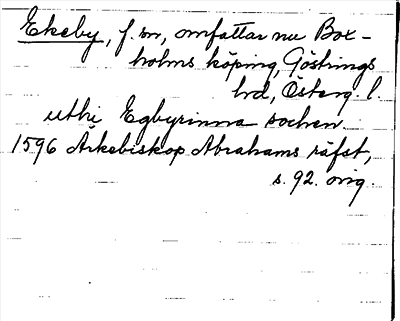 Ekeby, f. sn, omfattar nu Box-
holms köping, Göstrings
hd, Österg. l.
uthi Egbyrinna sochen
1596 Ärkebiskop Abrahams räfst,
s. 92. orig.